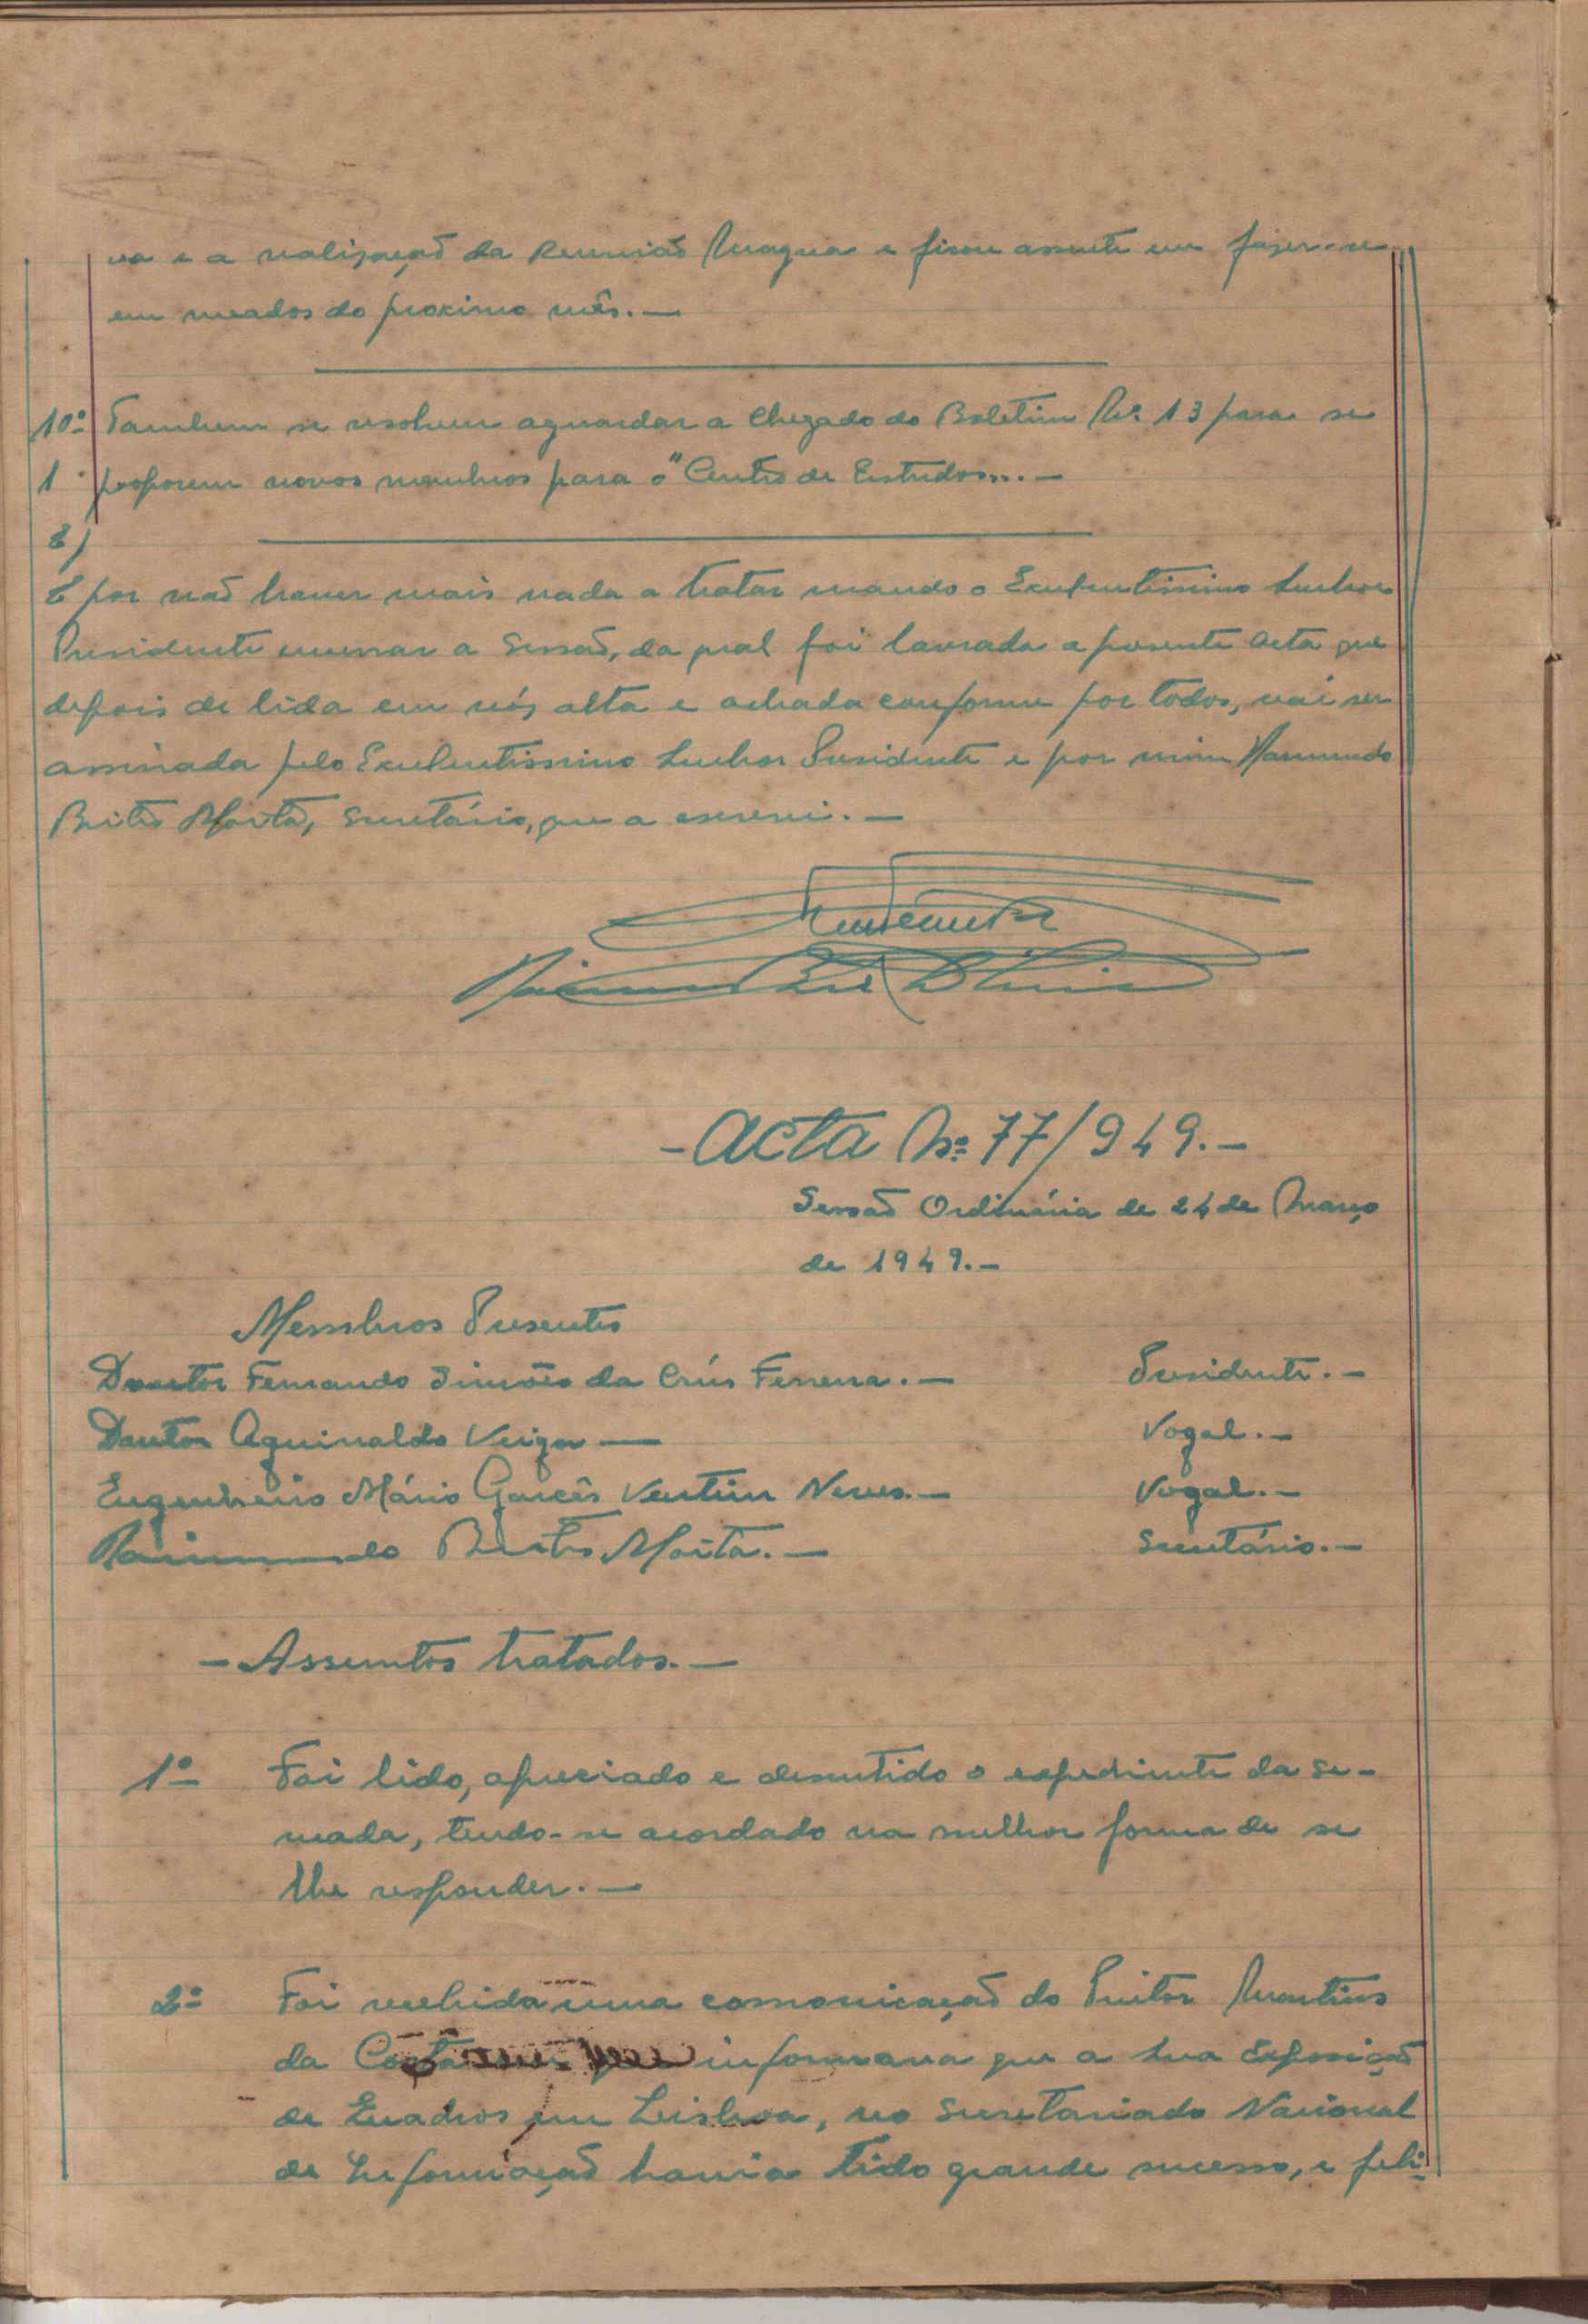 va e a realização da Reunião Magna e ficou assente em fazer-se
em meados do proximo mês.—
10º Tambem se resolveu aguardar a chegada do Boletim Nº 13 para se
1 proporem novos membros para o "Centro de Estudos....—
E por não haver mais nada a tratar mandou o Excelentissimo Senhor
Presidente encerrar a Sessão, da qual foi lavrada a presente acta que
depois de lida em vós alta e achada conforme por todos, vai ser
assinada pelo Excelentissimo Senhor Presidente e por mim Raimundo
Brites Moita, Secretário, que a escrevi.—
-Acta Nº 77/949.-
Sessão Ordinária de 24 de Março
de 1949.-
Membros Presentes
Doutor Fernando Simões da Crús Ferreira.— Presidente.-
Doutor Aguinaldo Veiga — Vogal.-
Engenheiro Mário Garcês Ventim Neves.- Vogal.-
Raimundo Brites Moita.— Secretário.-
-Assuntos tratados.—
1º Foi lido, apreciado e descutido o expediente da se-
mada, tendo-se acordado na melhor forma de se
lhe responder.—
2º Foi recebida uma comonicação do Pintor Martins
da Costa informava que a sua Exposição
de Quadros em Lisboa, no Secretariado Nacional
de Informação havia tido grande sucesso, e feli-